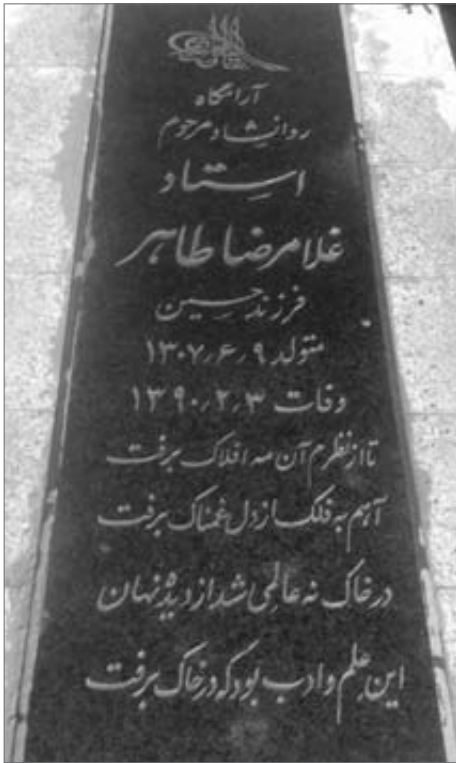 آرامگاه
روانشاد مرحوم
استاد
غلامرضا طاهر
فرزند حسین
متولد ۱۳۰۷٫۶٫۹
وفات ۱۳۹۰٫۲٫۳
تا از نظرم آن مه افلاک برفت
آهم به فلک از دل غمناک برفت
در خاک نه عالمی شد از دیده نهان
این علم و ادب بود که در خاک برفت